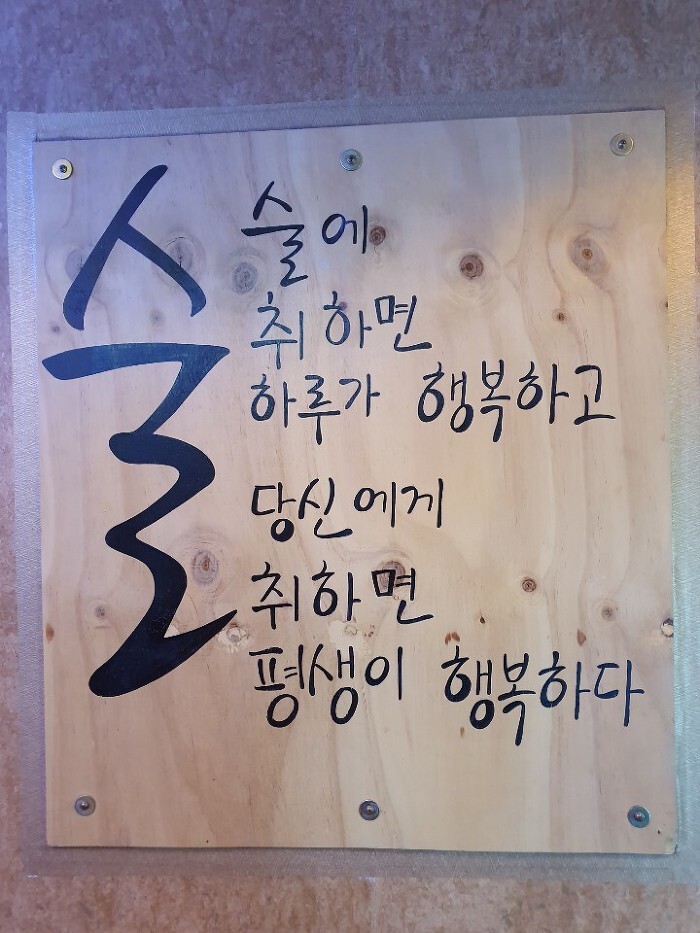 술
술에
취하면
하루가 행복하고
당신에게
취하면
평생이 행복하다